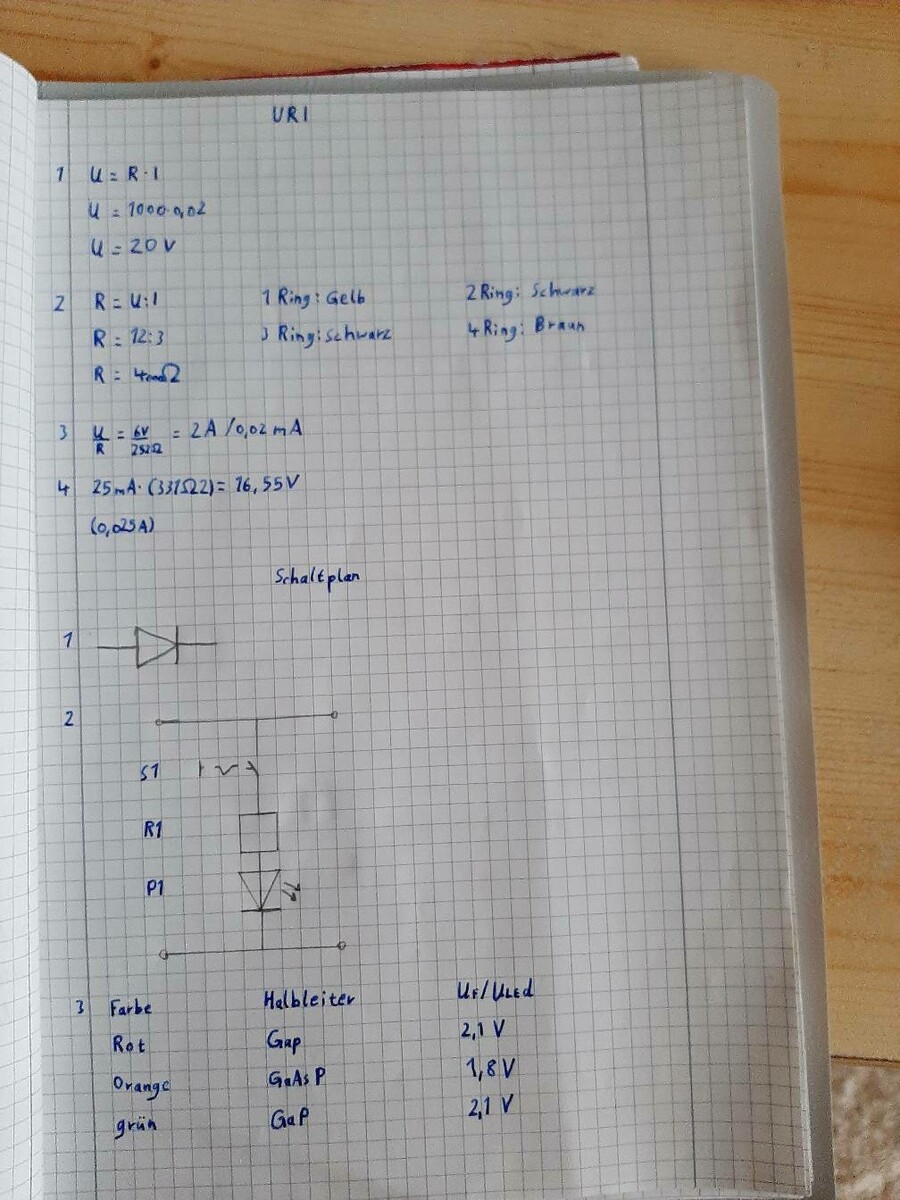 URI
1 U = R·I
U = 1000·0,02
U = 20 V
2 R = U:I 1 Ring: Gelb 2 Ring: Schwarz
R = 12:3 3 Ring: Schwarz 4 Ring: Braun
R = 4000Ω
3 U/R = 6V/252Ω = 2A /0,02 mA
4 25mA·(331Ω2) = 16,55V
(0,025A)
Schaltplan
1
2
S1
R1
P1
3 Farbe Halbleiter UF/ULED
Rot Gap 2,1 V
Orange GaAsP 1,8 V
grün GaP 2,1 V